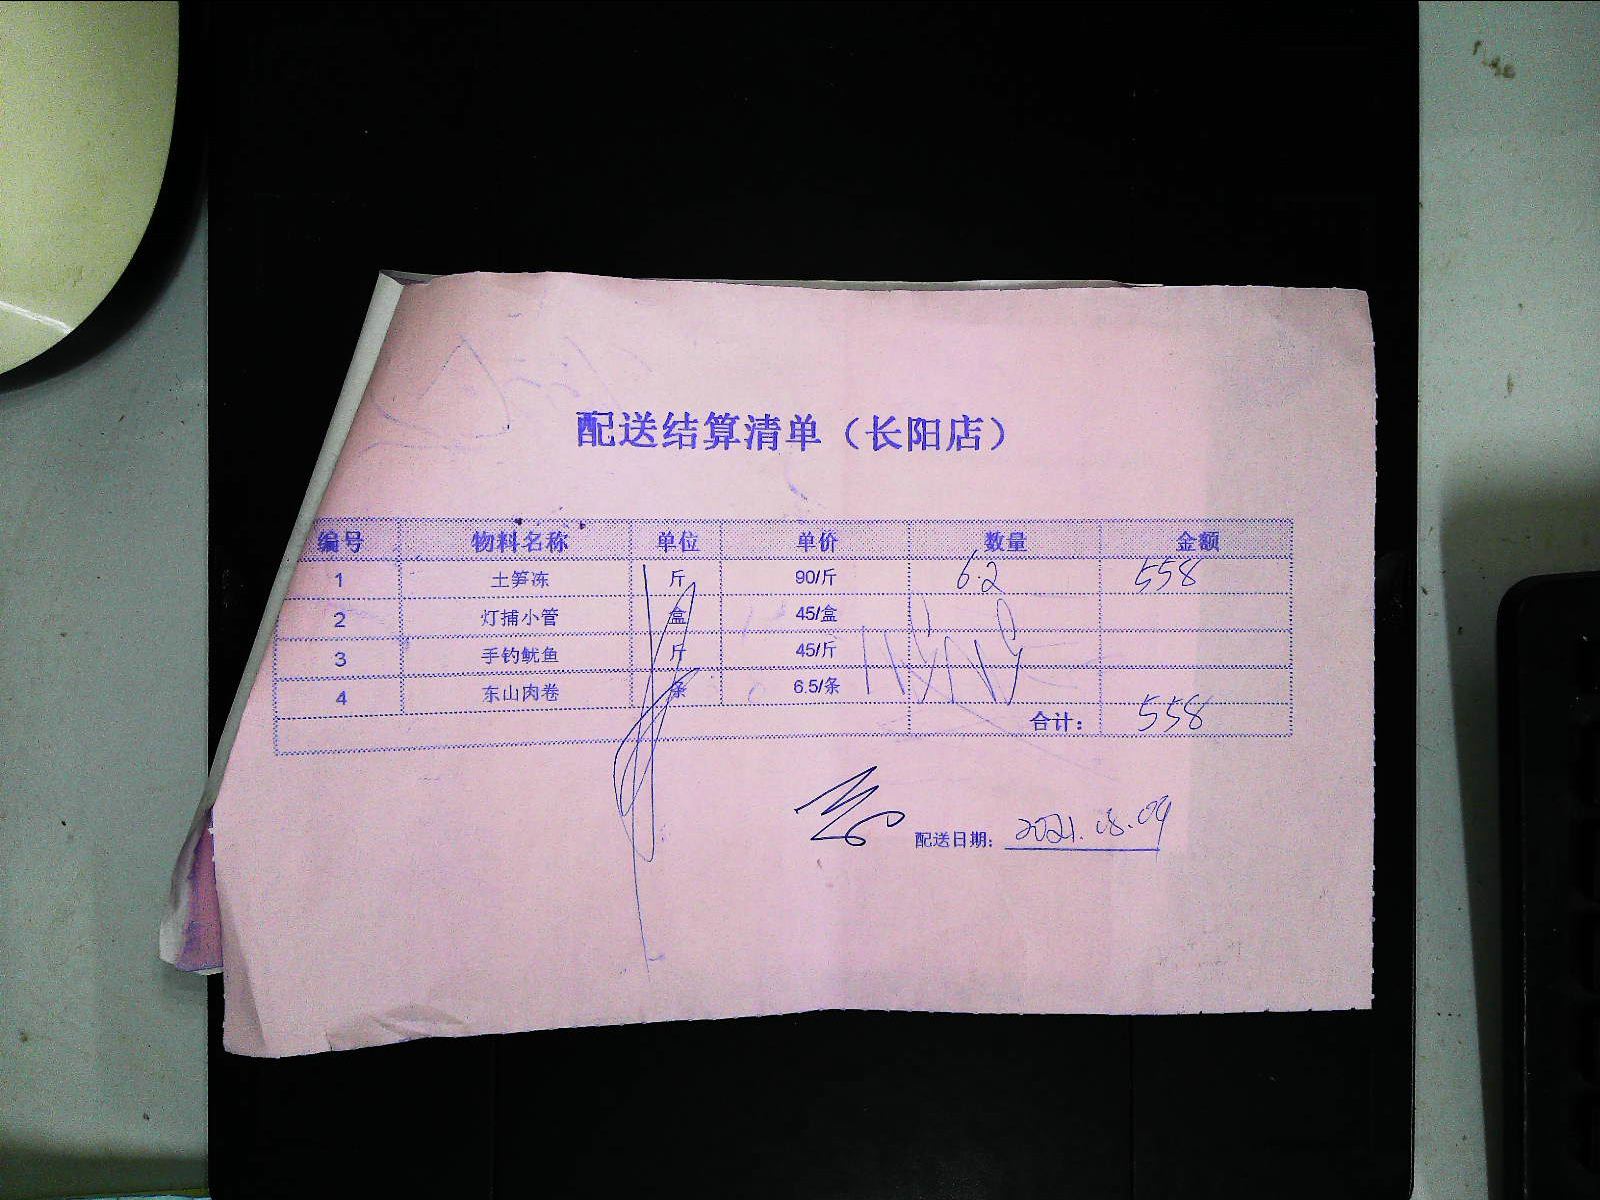 配送结算清单（长阳店）
编号 物料名称 单位 单价 数量 金额
1 土笋冻 斤 90/斤 6.2 558
2 灯捕小管 盒 45/盒
3 手钓鱿鱼 斤 45/斤
4 东山肉卷 条 6.5/条
合计： 558
配送日期： 2021.08.09